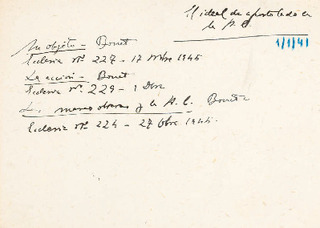 El ideal de apostolado en
la A.C.
1/1/41
Su objeto - Bonet
Ecclesia Nº 227 - 17 Nbre 1945
La acción - Bonet
Ecclesia Nº 229 - 1 Dbre
Las meras obras y la A.C. Bonet
Ecclesia Nº 224 - 27 Obre 1945.